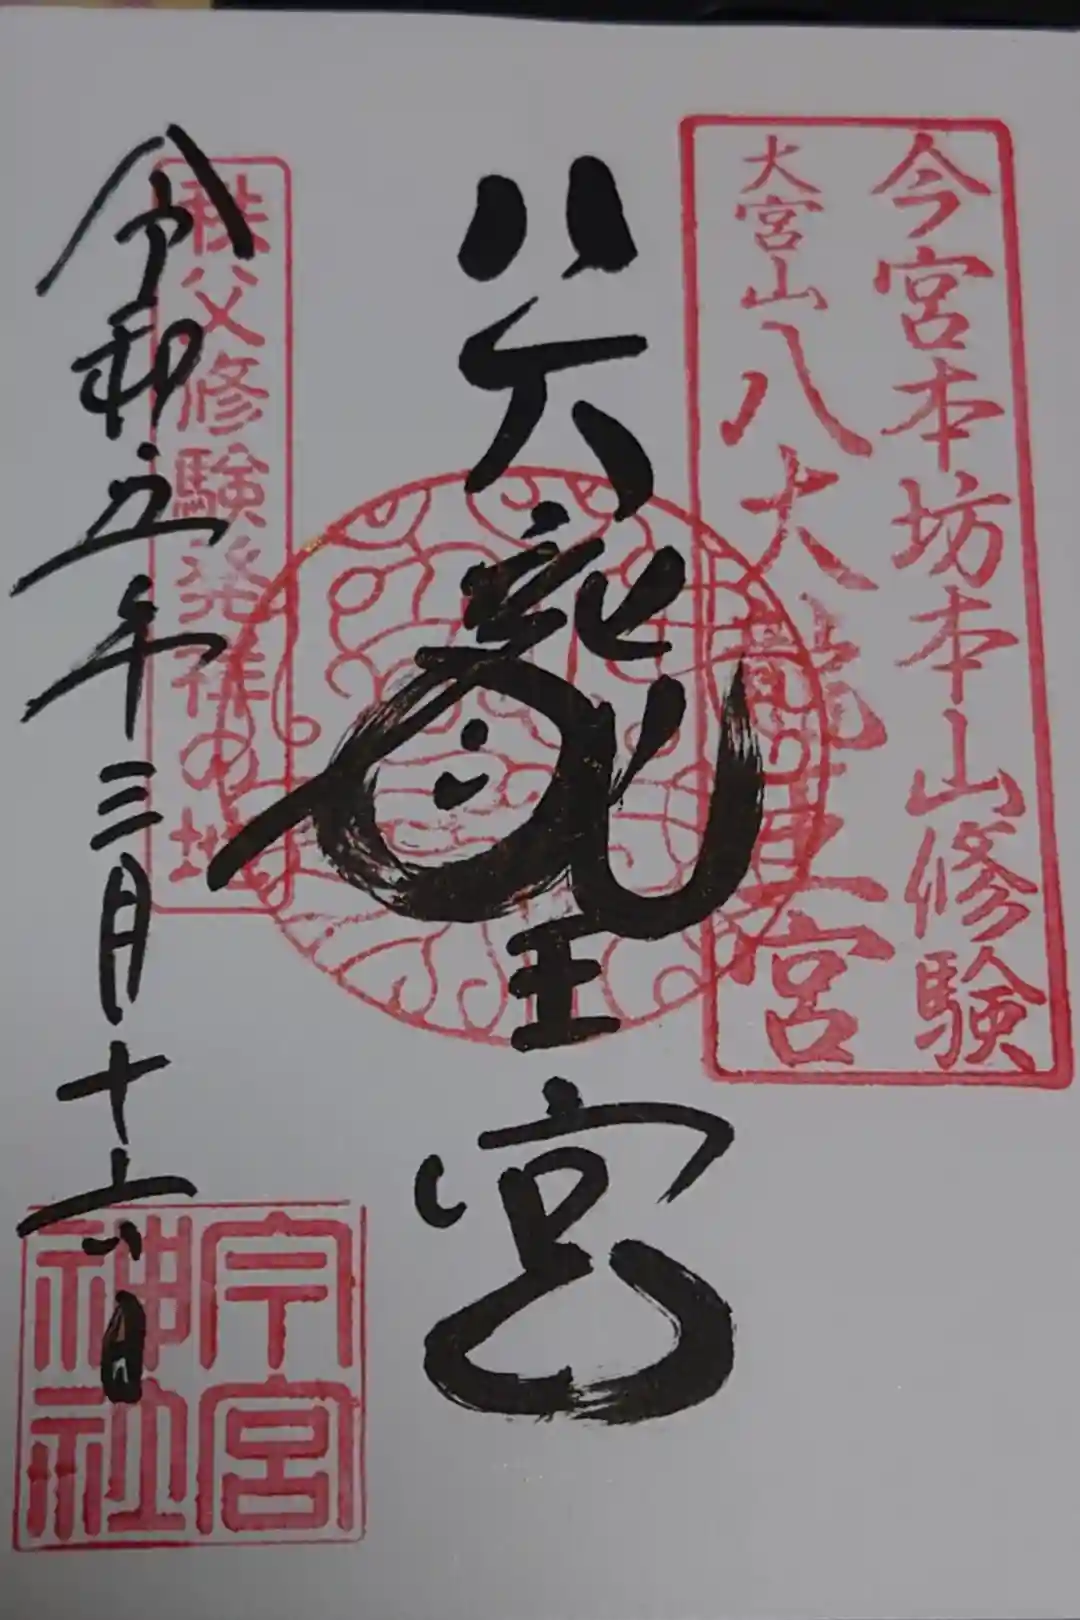 今宮本坊本山修験
大宮山八大龍王宮
八大龍王宮
秩父修験発祥の地
令和五年三月十六日
今宮
神社